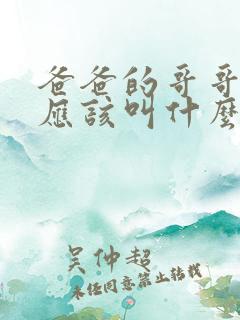 爸爸的哥哥
應該叫什麼
吴仲超
未经同意禁止转载